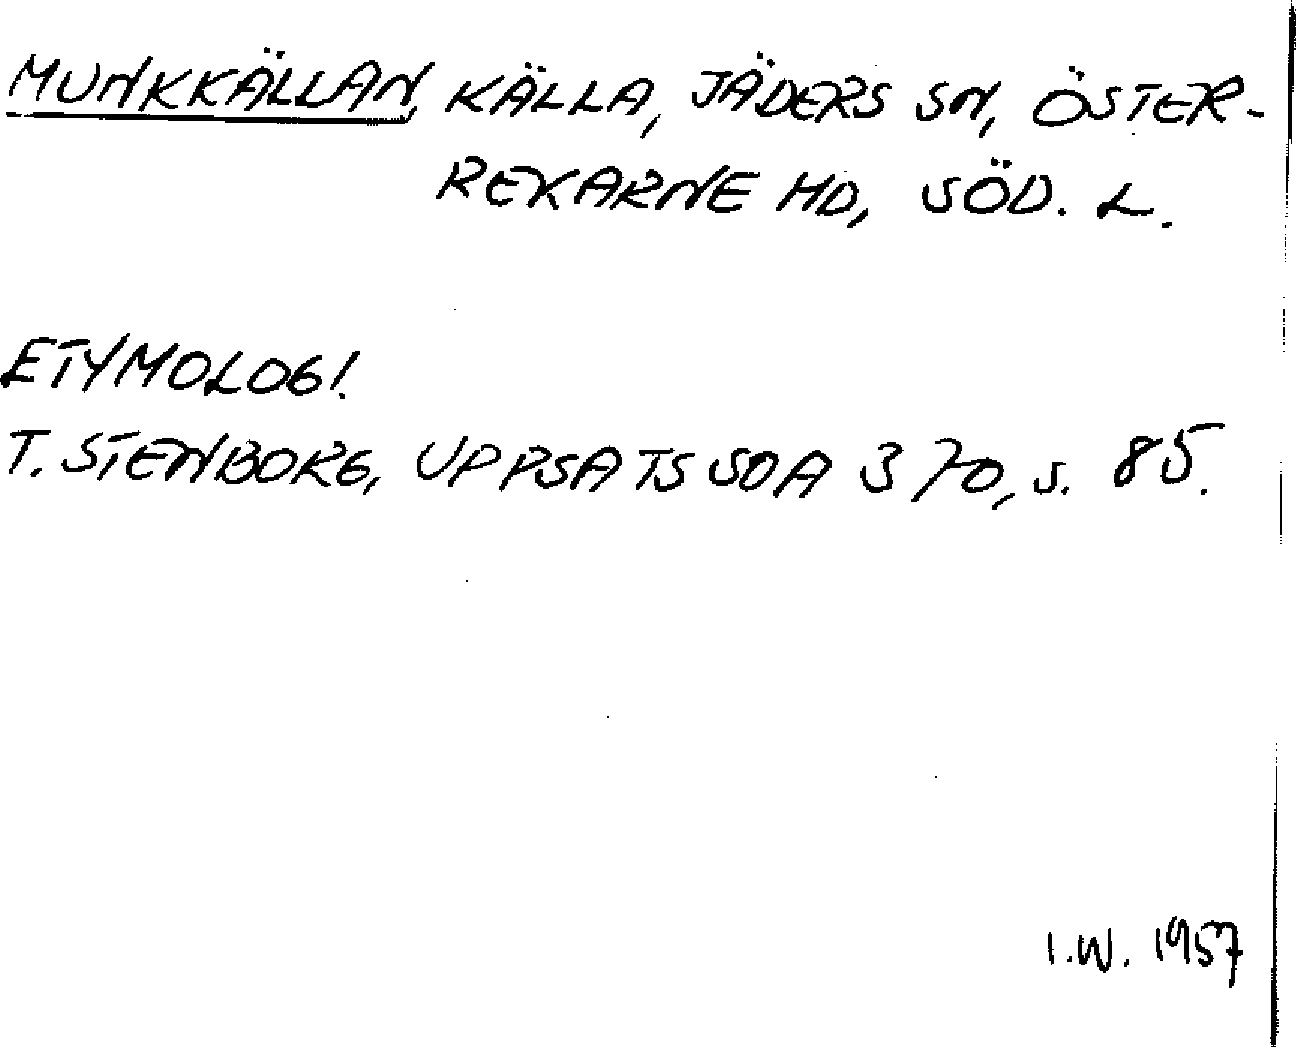 MUNKKÄLLAN, KÄLLA, JÄDERS SN, ÖSTER-
REKARNE HD, SÖD. L.
ETYMOLOGI.
T. STENBORG, UPPSATS SOA 370, s. 85.
I.W. 1957